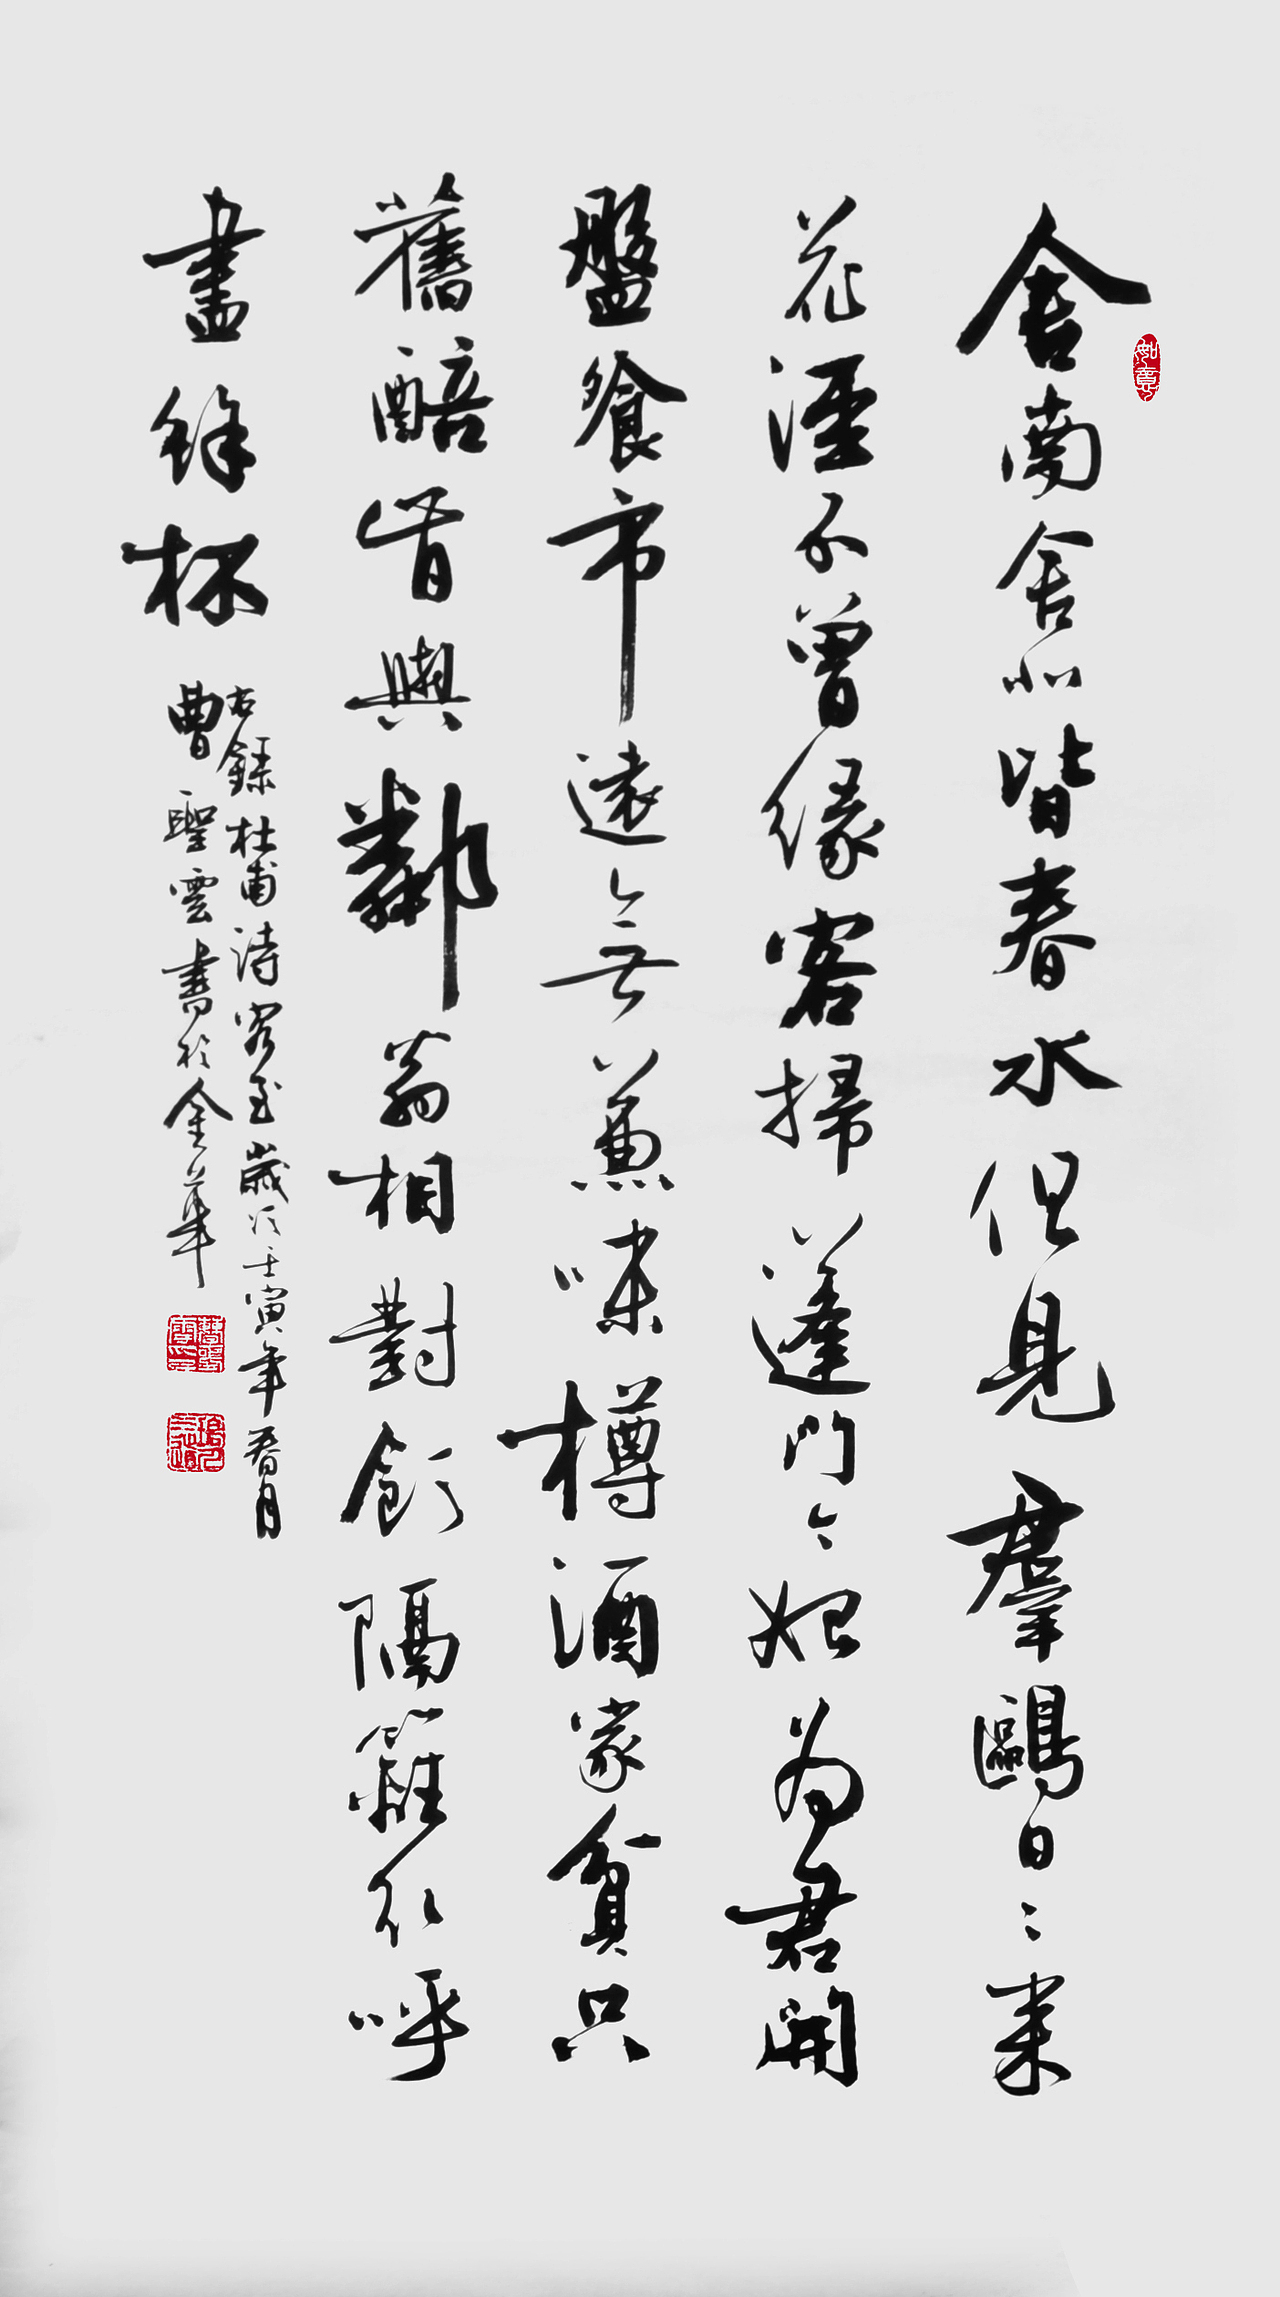 舍南舍北皆春水但見羣鷗日〻來
花徑不曾緣客掃蓬門今始為君開
盤飧市遠無兼味樽酒家貧只
舊醅肯與鄰翁相對飲隔籬取呼
盡餘杯
右錄杜甫詩客至歲次壬寅年春月
曹聖雲書於金華
如意